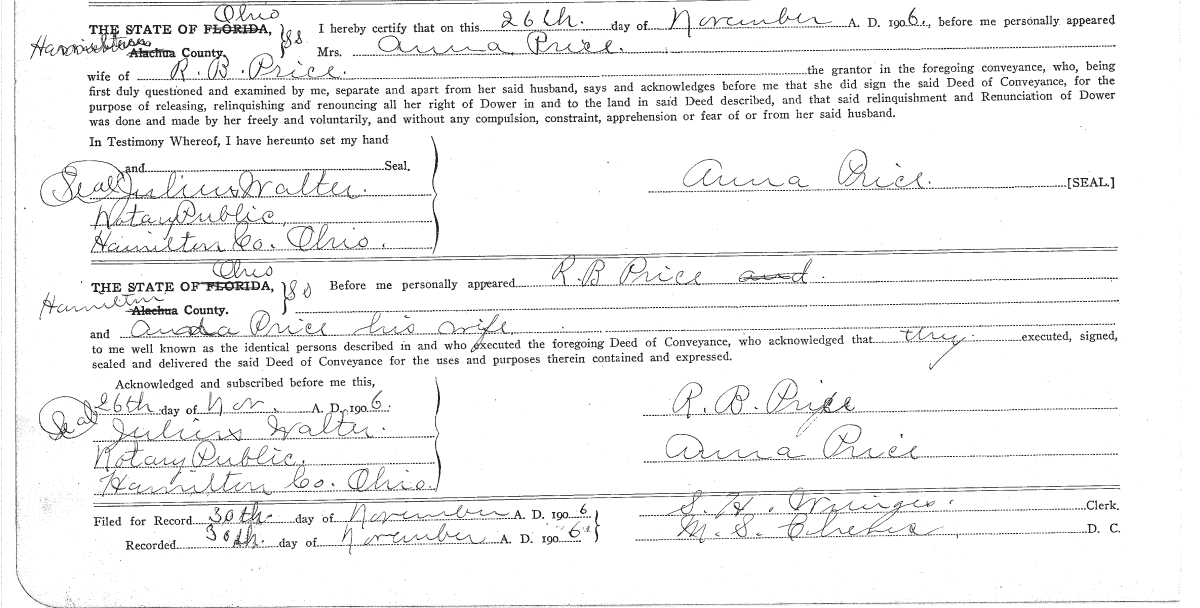 Ohio
THE STATE OF FLORIDA, }ss I hereby certify that on this 26th. day of November A. D. 1906., before me personally appeared
Alachua County. Mrs. Anna Price.
wife of R. B. Price. the grantor in the foregoing conveyance, who, being
first duly questioned and examined by me, separate and apart from her said husband, says and acknowledges before me that she did sign the said Deed of Conveyance, for the
purpose of releasing, relinquishing and renouncing all her right of Dower in and to the land in said Deed described, and that said relinquishment and Renunciation of Dower
was done and made by her freely and voluntarily, and without any compulsion, constraint, apprehension or fear of or from her said husband.
In Testimony Whereof, I have hereunto set my hand
and Seal.
Seal Julius Walter. Anna Price. [SEAL.]
Notary Public,
Hamilton Co. Ohio.
Ohio
THE STATE OF FLORIDA, }ss Before me personally appeared R. B Price and
Hamilton
Alachua County.
and Anna Price his wife
to me well known as the identical persons described in and who executed the foregoing Deed of Conveyance, who acknowledged that they executed, signed,
sealed and delivered the said Deed of Conveyance for the uses and purposes therein contained and expressed.
Acknowledged and subscribed before me this,
Seal 26th day of Nov. A. D. 1906. R. B. Price
Julius Walter.
Notary Public. Anna Price
Hamilton Co. Ohio.
Filed for Record 30th. day of November A. D. 1906. S. H. Clerk.
Recorded 30th. day of November A. D. 1906 M. S. D. C.